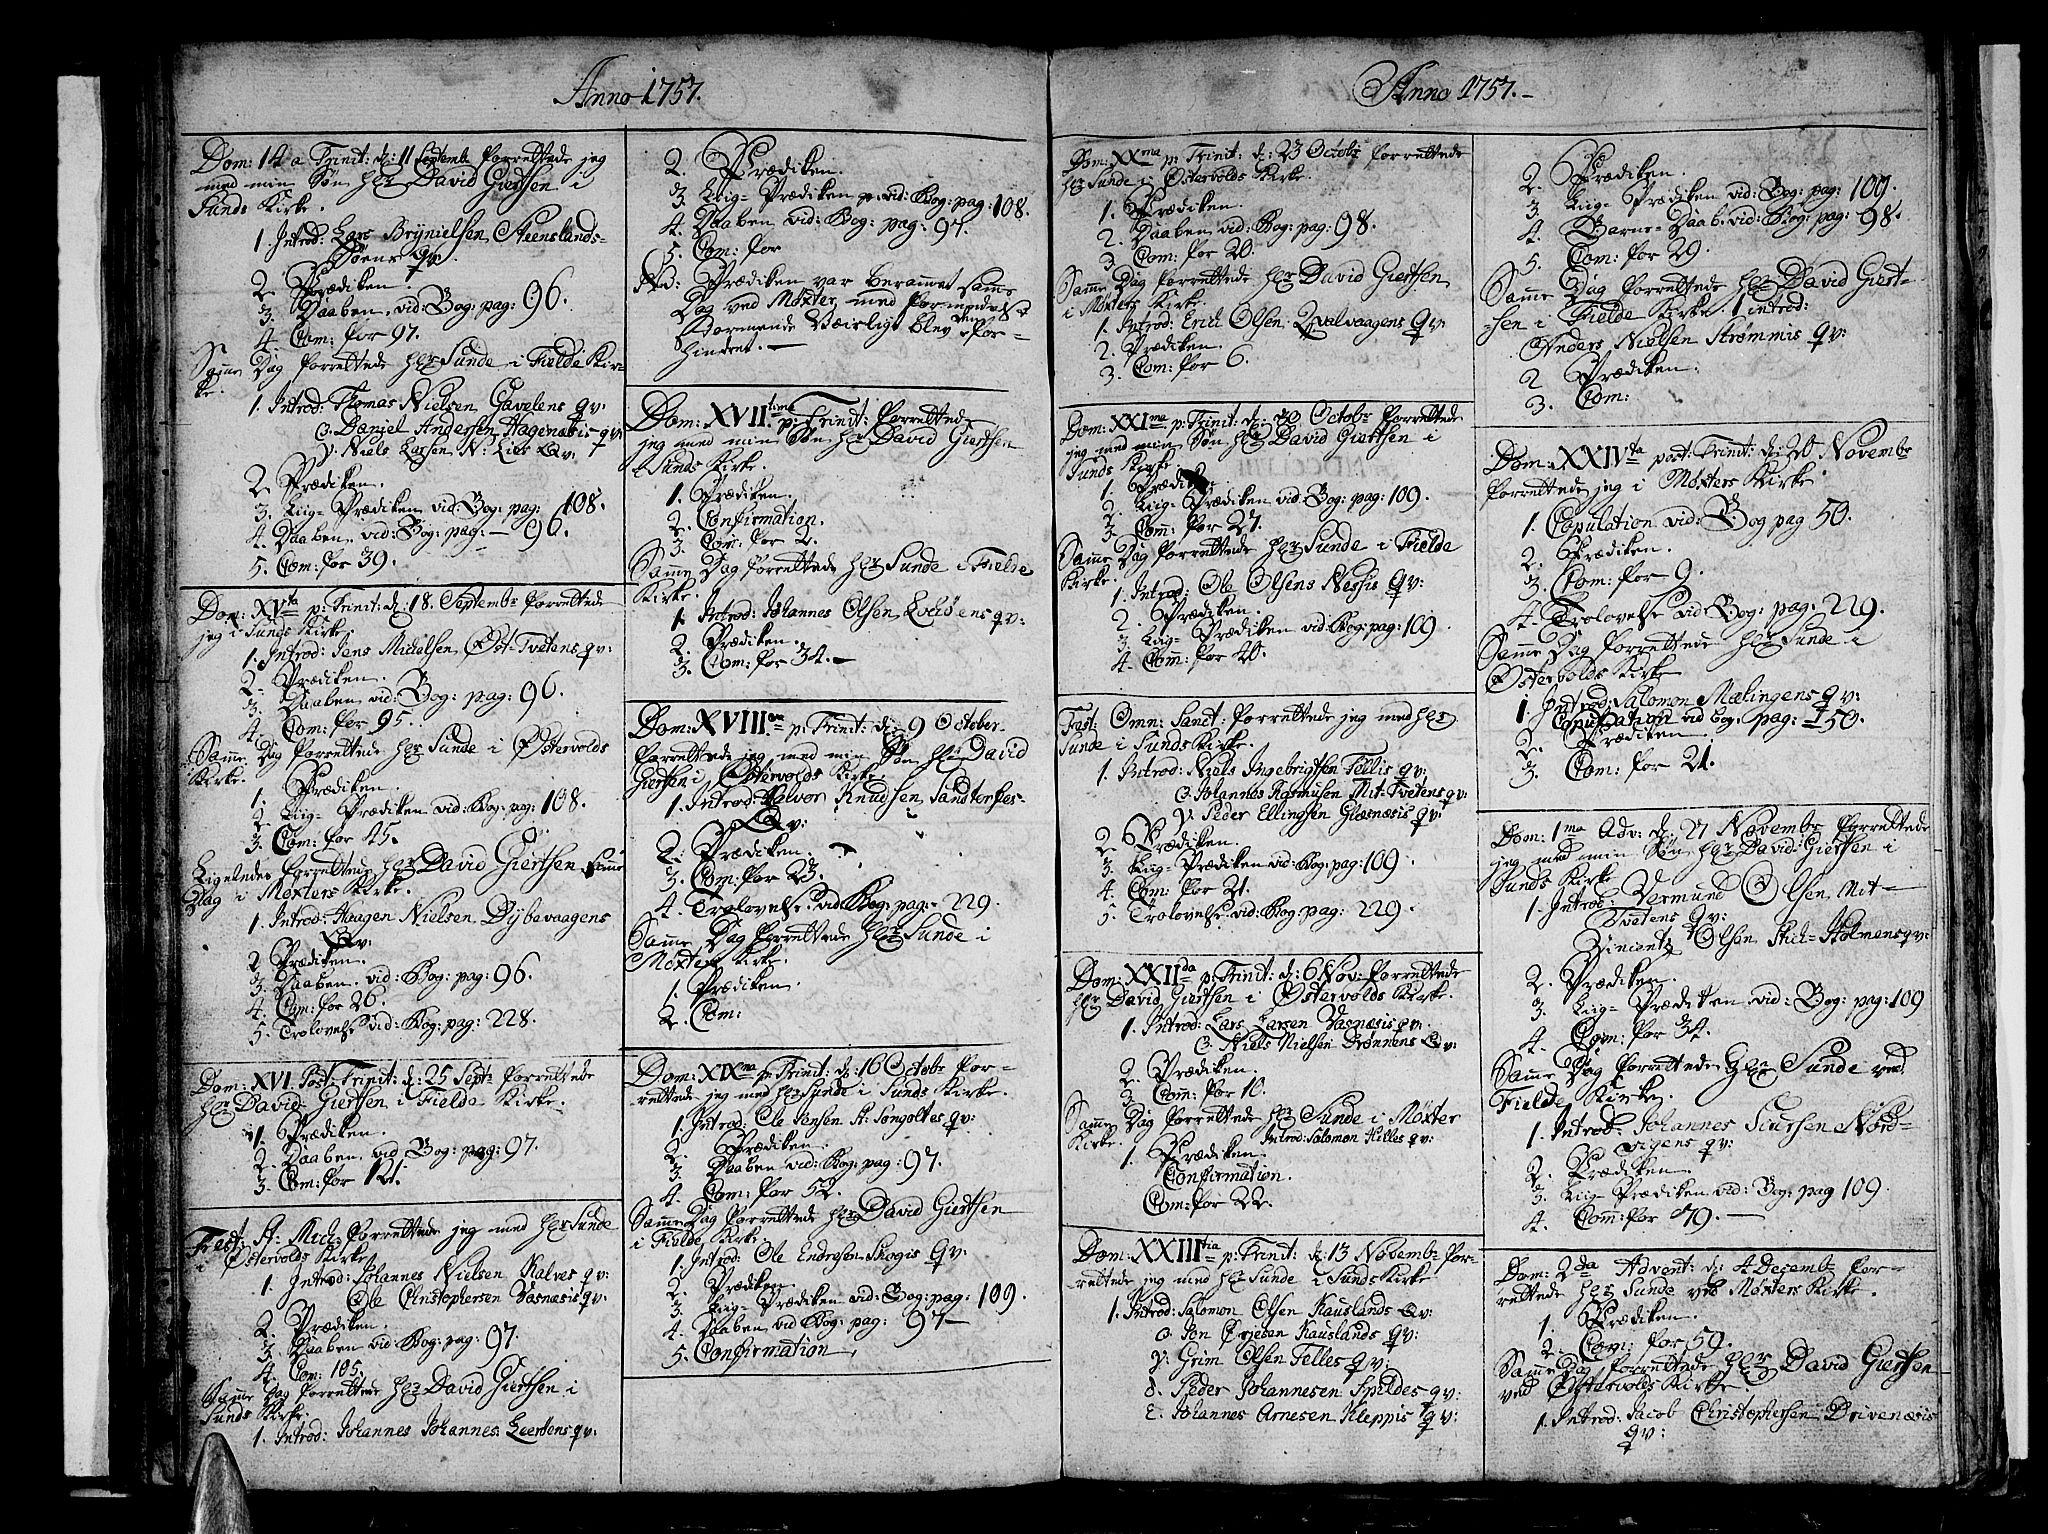 Anno 1757.
Dom: 14 a Trinit: d: 11 Septemb forrettede jeg
med min Søn her David Giertsen i
Sunds Kirke.
1. Introd: Lars Brynielsen Steenslands-
qv:
2. Prædiken.
3. Daaben, vid: Bog: pag: 96.
4. Com: for 97.
Samme Dag forrettede her Sunde i Fielde Kir-
ke.
1. Introd: Thomas Nielsen Gavelens qv:
Daniel Andersen Hagenæsis qv:
Niels Larsen N: Lies qv:
2. Prædiken.
3. Liig-Prædiken vid: Bog: pag: 108.
4. Daaben, vid: Bog: pag: - 96.
5. Com: for 39.
Dom: XVta p: Trinit: d: 18. Septembr forrettede
jeg i Sunds Kirke.
1. Introd: Jens Michelsen Øst-Tvetens qv:
2. Prædiken.
3. Daaben, vid: Bog: pag: 96.
4. Com: for 95.
Samme Dag forrettede her Sunde i Østervolds
Kirke.
1. Prædiken.
2. Liig-Prædiken vid: Bog: pag: 108.
3. Com: for 45.
Ligeledes forrettede her David Giertsen samme
Dag i Møxters Kirke.
1. Introd: Haagen Nielsen Dybevaagens
qv:
2. Prædiken.
3. Daaben. vid: Bog: pag: 96.
4. Com: for 26.
5. Trolovelse vid: Bog: pag: 228.
Dom: XVI. Post: Trinit: d: 25 Septr forrettede
her David Giertsen i Fielde Kirke.
1. Prædiken.
2. Daaben, vid Bog: pag: 97.
3. Com: for 121.
Fest: St: Mich: forrettede jeg med her Sunde
i Østervolds Kirke
1. Introd: Johannes Nielsen Kalves qv:
Ole Christophersen Vasnæsis qv:
2. Prædiken.
3. Daaben vid: Bog: pag: 97.
4. Com: 105.
Samme Dag forrettede her David Giertsen i
Sunds Kirke.
1. Introd: Johannes Johannes: qv:
2. Prædiken.
3. Liig-Prædiken vid: Bog: pag: 108.
4. Daaben vid: Bog: pag: 97.
5. Com: for
Prædiken var berammet samme
Dag ved Møxter, med formedelst
Stormende Veirligt blev den for-
hindret. -
Dom: XVIItima p: Trinit: forrettede
jeg med min Søn her David Giertsen
i Sunds Kirke.
1. Prædiken.
2. Confirmation.
3. Com: for 2.
Samme Dag forrettede her Sunde i Fielde
Kirke.
1. Introd: Johannes Olsen qv:
2. Prædiken.
3. Com: for 34. -
Dom: XVIII p: Trinit: d: 9 October
forrettede jeg med min Søn her David
Giertsen i Østervolds Kirke.
1. Introd: Halvor Knudsen
qv:
2. Prædiken.
3. Com: for 23.
4. Trolovelse vid Bog: pag: - 229.
Samme Dag forrettede her Sunde i
Møxters Kirke.
1. Prædiken.
2. Com:
Dom: XIXna p: Trinit: d: 16 Octobr for-
rettede jeg med her Sunde i Sunds Kirke.
1. Introd: Ole Jensen qv:
2. Prædiken.
3. Daaben vid: Bog: pag: 97.
4. Com: for 52.
Samme Dag forrettede her David Giertsen
i Fielde Kirke
1. Introd: Ole Endresen Skogis qv:
2. Prædiken.
3. Liig-Prædiken vid: Bog: pag: 109.
4. Daaben vid Bog: pag: 97 -
5. Confirmation.
Anno 1757. -
Dom: XXma p: Trinit: d: 23 Octobr forrettede
her Sunde i Østervolds Kirke.
1. Prædiken.
2. Daaben vid: Bog: pag: 98.
3. Com: for 20.
Samme Dag forrettede her David Giertsen
i Møxters Kirke.
1. Introd: Erich Olsen Qvalvaagens qv:
2. Prædiken.
3. Com: for 6.
Dom: XXIma p: Trinit: d: 30 Octobr forrettede
jeg med min Søn her David Giertsen i
Sunds Kirke.
1. Prædiken.
2. Liig-Prædiken vid: Bog: pag: 109.
3. Com: for 27.
Samme Dag forrettede her Sunde i Fielde
Kirke.
1. Introd: Ole Olsens Nessis qv:
2. Prædiken.
3. Liig-Prædiken vid: Bog: pag: 109
4. Com: for 40.
Fest: Omn: Sanct: forrettede jeg med her
Sunde i Sunds Kirke.
1. Introd: Niels Ingebrigtsen Tellis qv:
Johannes Rasmusen Mit-Tvetens qv:
Peder Ellingsen Glæsnæsis qv:
2. Prædiken.
3. Liig-Prædiken vid: Bog: pag: 109
4. Com: for 21.
5. Trolovelse vid: Bog: pag: 229.
Dom: XXIIda p: Trinit: d: 6 Nov: forrettede
her David Giertsen i Østervolds Kirke.
1. Introd: Lars Larsen Vasnæsis qv:
Niels Nielsen Drønnens qv:
2. Prædiken.
3. Com: for 10.
Samme Dag forrettede her Sunde i Møxter
Kirke.
Introd: Salomon Hilles qv:
1. Prædiken.
Confirmation.
Com: for 22.
Dom: XXIIItia p: Trinit: d: 13 Novembr for-
rettede jeg med her Sunde i Sunds Kirke
1. Introd: Salomon Olsen Kauslands qv:
Kauslands qv:
Grim Olsen Telles qv:
Peder Johannesen Spildes qv:
Johannes Arnesen Kleppis qv:
2. Prædiken.
3. Liig-Prædiken vid: Bog: pag: 109.
4. Barne-Daab vid: Bog: pag: 98.
5. Com: for 29.
Samme Dag forrettede her David Giert-
sen i Fielde Kirke. 1 introd:
Anders Nielsen Strømmis qv:
2 Prædiken.
3. Com:
Dom: XXIVta post: Trinit: d: 20 Novembr
forrettede jeg i Møxters Kirke.
1. Copulation vid: Bog pag 50.
2. Prædiken.
3. Com: for 9.
4. Trolovelse vid Bog: pag: 229.
Samme Dag forrettede her Sunde i
Østervolds Kirke
1. Introd: Salomon Mælingens qv:
Copulation vid Bog: pag: 50.
2. Prædiken
3. Com: for 21.
Dom: 1ma Adv: d: 27 Novembr forrettede
jeg med min Søn her David Giertsen i
Sunds Kirke
1. Introd: Vermund Olsen Mit-
Tvetens qv:
Olsen qv:
2. Prædiken.
3. Liig-Prædiken vid: Bog: pag: 109
4. Com: for 34.
Samme Dag forrettede her Sunde ved
Fielde Kirke.
1. Introd: Johannes Siursen Nord-
vigens qv:
2. Prædiken.
3. Liig-Prædiken vid: Bog: pag 109.
4. Com: for 79. -
Dom: 2da Advent: d: 4 Decembr for-
rettede her Sunde ved Møxters Kirke.
1. Prædiken.
2. Com: for 59.
Samme Dag forrettede her David Giertsen
ved Østervolds Kirke.
1. Introd: Jacob Christophersen Drivenæsis
qv: